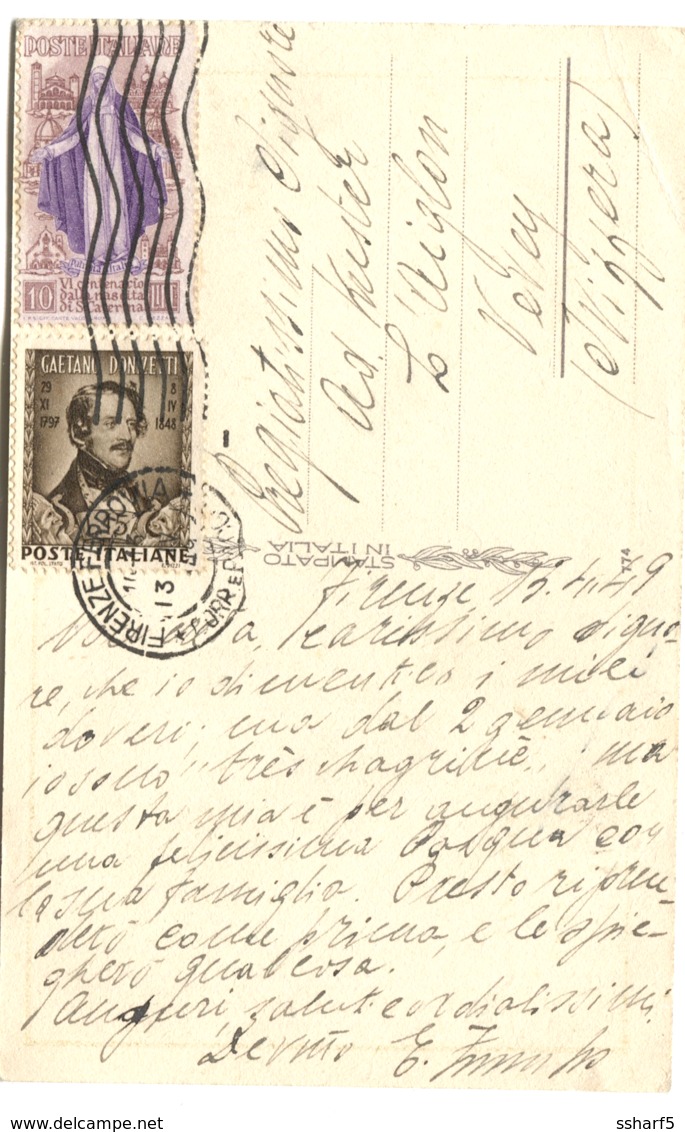 POSTE ITALIANE
10
VI centenario
dalla nascita
di S. Caterina
GAETANO DONIZETTI
29 8
XI IV
1797 1848
POSTE ITALIANE
FIRENZE FERROVIA
13
CORR
Pregiatissimo Signore
Ad. Kuster
L'Aiglon
Vevey
(Svizzera)
STAMPATO
IN ITALIA
774
Firenze 13.4.49
carissimo Signo-
re, che io dimentico i miei
doveri; ma dal 2 gennaio
io sono "très chagriné", ma
questa mia è per augurarle
una felicissima Pasqua con
la sua famiglia. Presto ripren-
derò come prima, e le spie-
gherò qualcosa.
Auguri, saluti cordialissimi.
Dev.mo E.
ssharf5